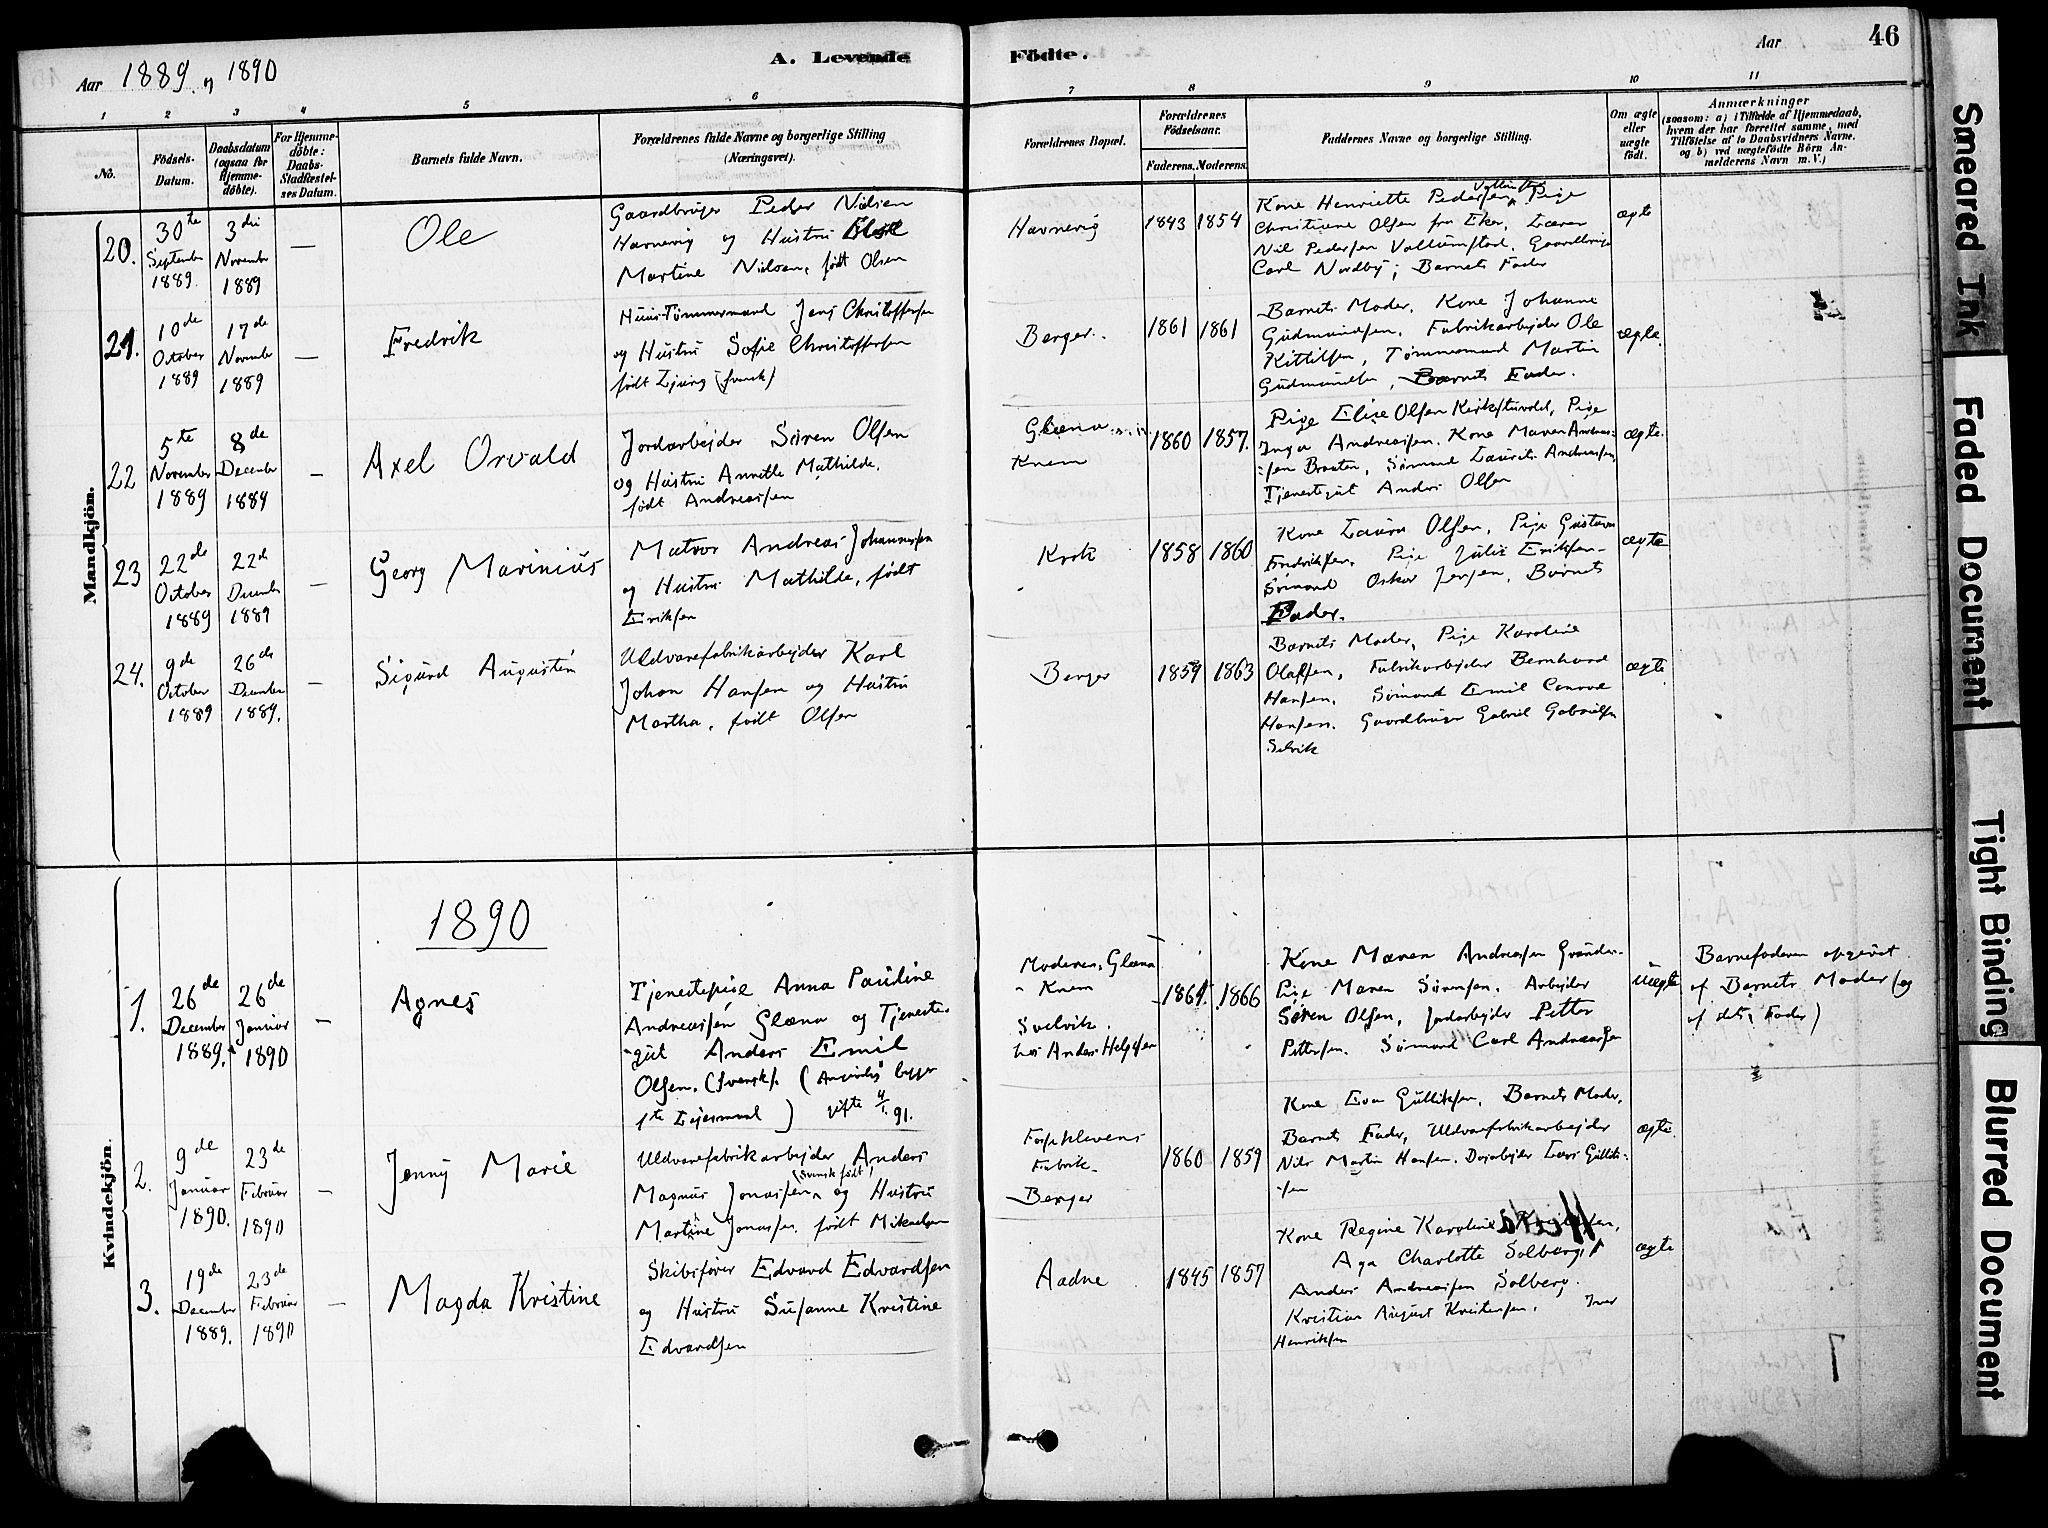 Aar 1889 og 1890
A. Levende Födte.
Aar
46
1 2 3 4 5 6 7 8 9 10 11
No.
Födsels-Datum.
Daabsdatum (ogsaa for Hjemme-döbte).
For Hjemme-döbte: Daabs-Stadfæstel-ses Datum.
Barnets fulde Navn.
Forældrenes fulde Navne og borgerlige Stilling (Næringsvei).
Forældrenes Bopæl.
Forældrenes Födselsaar.
Faderens. Moderens.
Faddernes Navne og borgerlige Stilling.
Om ægte eller uægte födt.
Anmærkninger
(saasom: a) i Tilfælde af Hjemmedaab, hvem der har forrettet samme, med Tilföielse af to Daabsvidners Navne. og b) ved uægtefödte Börn An-melderens Navn m. V.)
Mandkjön.
20.
30te September 1889.
3die November 1889
—
Ole
Gaardbruger Peder Nielsen
Havnevig og Hustru
Martine Nielsen, født Olsen
Havnevig
1843 1854
Kone Henriette Pedersen, Pige
Christiane Olsen fra Eker, Lærer
Nils Pedersen Vallumstad, Gaardbruger
Carl Nordby, Barnets Fader
ægte
21.
10de October 1889
17de November 1889
—
Fredrik
Huus-Tømmermand Jens Christoffersen
og Hustru Sofie Christoffersen
født Ljung (svensk)
Berger.
1861 1861
Barnets Moder, Kone Johanne
Gudmundsen, Fabrikarbejder Ole
Kittilsen, Tømmermand Martin
Gudmundsen, Barnets Fader.
ægte
22
5te November 1889
8de December 1889
—
Axel Orvald
Jordarbejder Søren Olsen
og Hustru Annette Mathilde,
født Andreassen
Glæna
Knem
1860 1857.
Pige Elise Olsen, Pige
Inga Andreassen. Kone Maren Andreas-
sen Braaten, Sømand Laurits Andreassen,
Tjenestegut Anders Olsen
ægte
23
22de October 1889
22de December 1889
—
Georg Marinius
Matros Andreas Johannessen
og Hustru Mathilde, født
Eriksen
Krok
1858 1860
Kone Laura Olsen, Pige Gustava
Fredriksen, Pige Julie Eriksen-
Sømand Oskar Jensen, Barnets
Fader.
ægte
24.
9de October 1889
26de December 1889.
—
Sigurd Augustin
Uldvarefabrikarbejder Karl
Johan Hansen og Hustru
Martha, født Olsen
Berger
1859 1863
Barnets Moder, Pige Karoline
Olafsen, Fabrikarbejder Bernhard
Hansen, Sømand Emil Conrad
Hansen. Gaardbruger Gabriel Gabrielsen
Selvik
ægte
Kvindekjön.
1890
1.
26de December 1889.
26de Januar 1890
—
Agnes
Tjenestepige Anna Pauline
Andreassen Glæna og Tjeneste-
gut Anders Emil
Olsen. (svensk). (begges
1te Lejermaal) gifte 4/1 91.
Moderen, Glæna
Knem
Svelvik.
hos Anders Helgesen
1864. 1866
Kone Maren Andreassen
Pige Maren Sørensen, Arbejder
Søren Olsen, Jordarbejder Petter
Pettersen. Sømand Carl Andreassen
uægte
Barnefaderen opgivet
af Barnets Moder (og
af dets Fader)
2.
9de Januar 1890.
23de Februar 1890
—
Jenny Marie
Uldvarefabrikarbejder Anders
(svensk født)
Magnus Jonassen og Hustru
Martine Jonassen, født Mikaelsen
Fossekleven
Fabrik-
Berger
1860 1859
Kone Eva Gulliksen, Barnets Moder,
Barnets Fader, Uldvarefabrikarbejder
Nils Martin Hansen, Lars Gullik-
sen
ægte
3.
19de December 1889.
23de Februar 1890
—
Magda Kristine
Skibsfører Edvard Edvardsen
og Hustru Susanne Kristine
Edvardsen
Aadne
1845 1857
Kone Regine Karoline
Aga Charlotte Solberg
Anders Andreassen Solberg.
Kristian August Kristensen, Iver
Henriksen
ægte
Smeared Ink
Faded Document
Tight Binding
Blurred Document